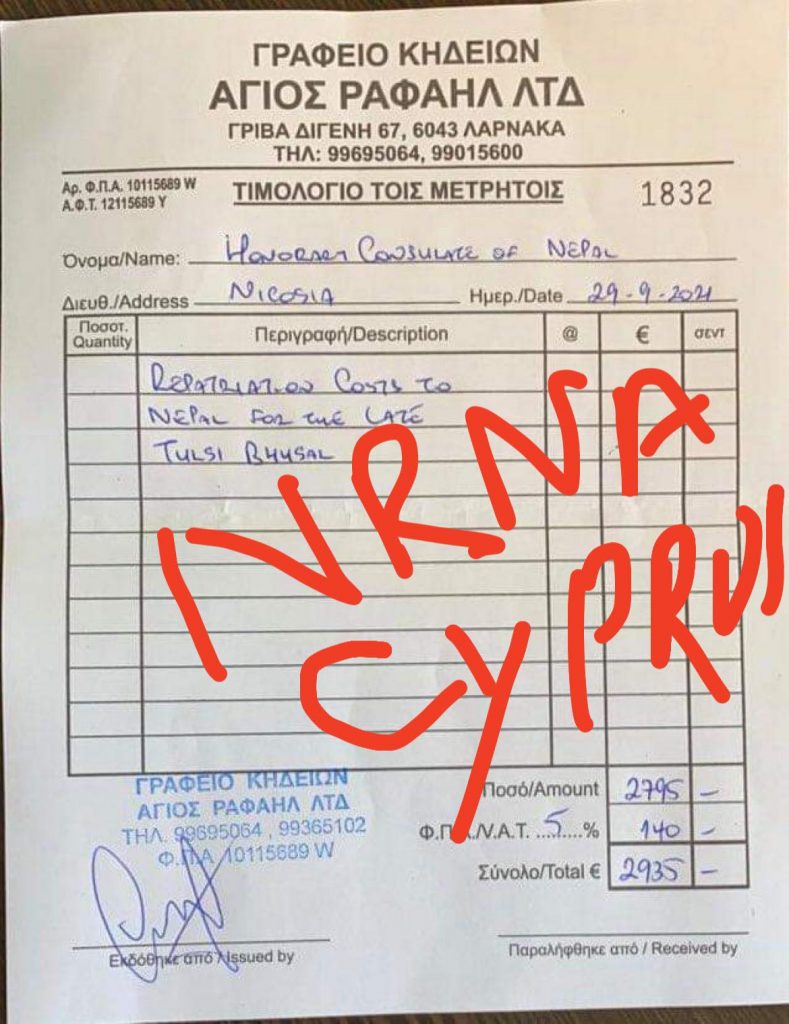 ΓΡΑΦΕΙΟ ΚΗΔΕΙΩΝ
ΑΓΙΟΣ ΡΑΦΑΗΛ ΛΤΔ
ΓΡΙΒΑ ΔΙΓΕΝΗ 67, 6043 ΛΑΡΝΑΚΑ
ΤΗΛ: 99695064, 99015600
Αρ. Φ.Π.Α. 10115689 W
Α.Φ.Τ. 12115689 Y
ΤΙΜΟΛΟΓΙΟ ΤΟΙΣ ΜΕΤΡΗΤΟΙΣ 1832
Όνομα/Name: HONORARY CONSULATE OF NEPAL
Διευθ./Address NICOSIA Ημερ./Date 29-9-2021
Ποσοτ. Quantity Περιγραφή/Description @ € σεντ
REPATRIATION COSTS TO
NEPAL FOR THE LATE
TULSI BHUSAL
NRNA
CYPRUS
Ποσό/Amount 2795 -
Φ.Π.Α./V.A.T. ...5....% 140 -
Σύνολο/Total € 2935 -
ΓΡΑΦΕΙΟ ΚΗΔΕΙΩΝ
ΑΓΙΟΣ ΡΑΦΑΗΛ ΛΤΔ
ΤΗΛ. 99695064 , 99365102
Φ.Π.Α 10115689 W
Εκδόθηκε από / Issued by
Παραλήφθηκε από / Received by